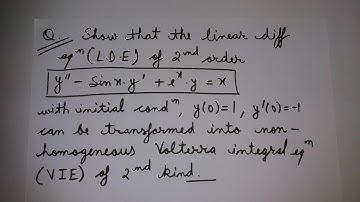 Q. Show that the linear diff
eqⁿ (L.D.E) of 2nd order
y'' - Sinx·y' + eˣ·y = x
with initial condⁿ, y(0)=1, y'(0)=-1
can be transformed into non-
homogeneous Volterra integral eqⁿ
(VIE) of 2nd kind.